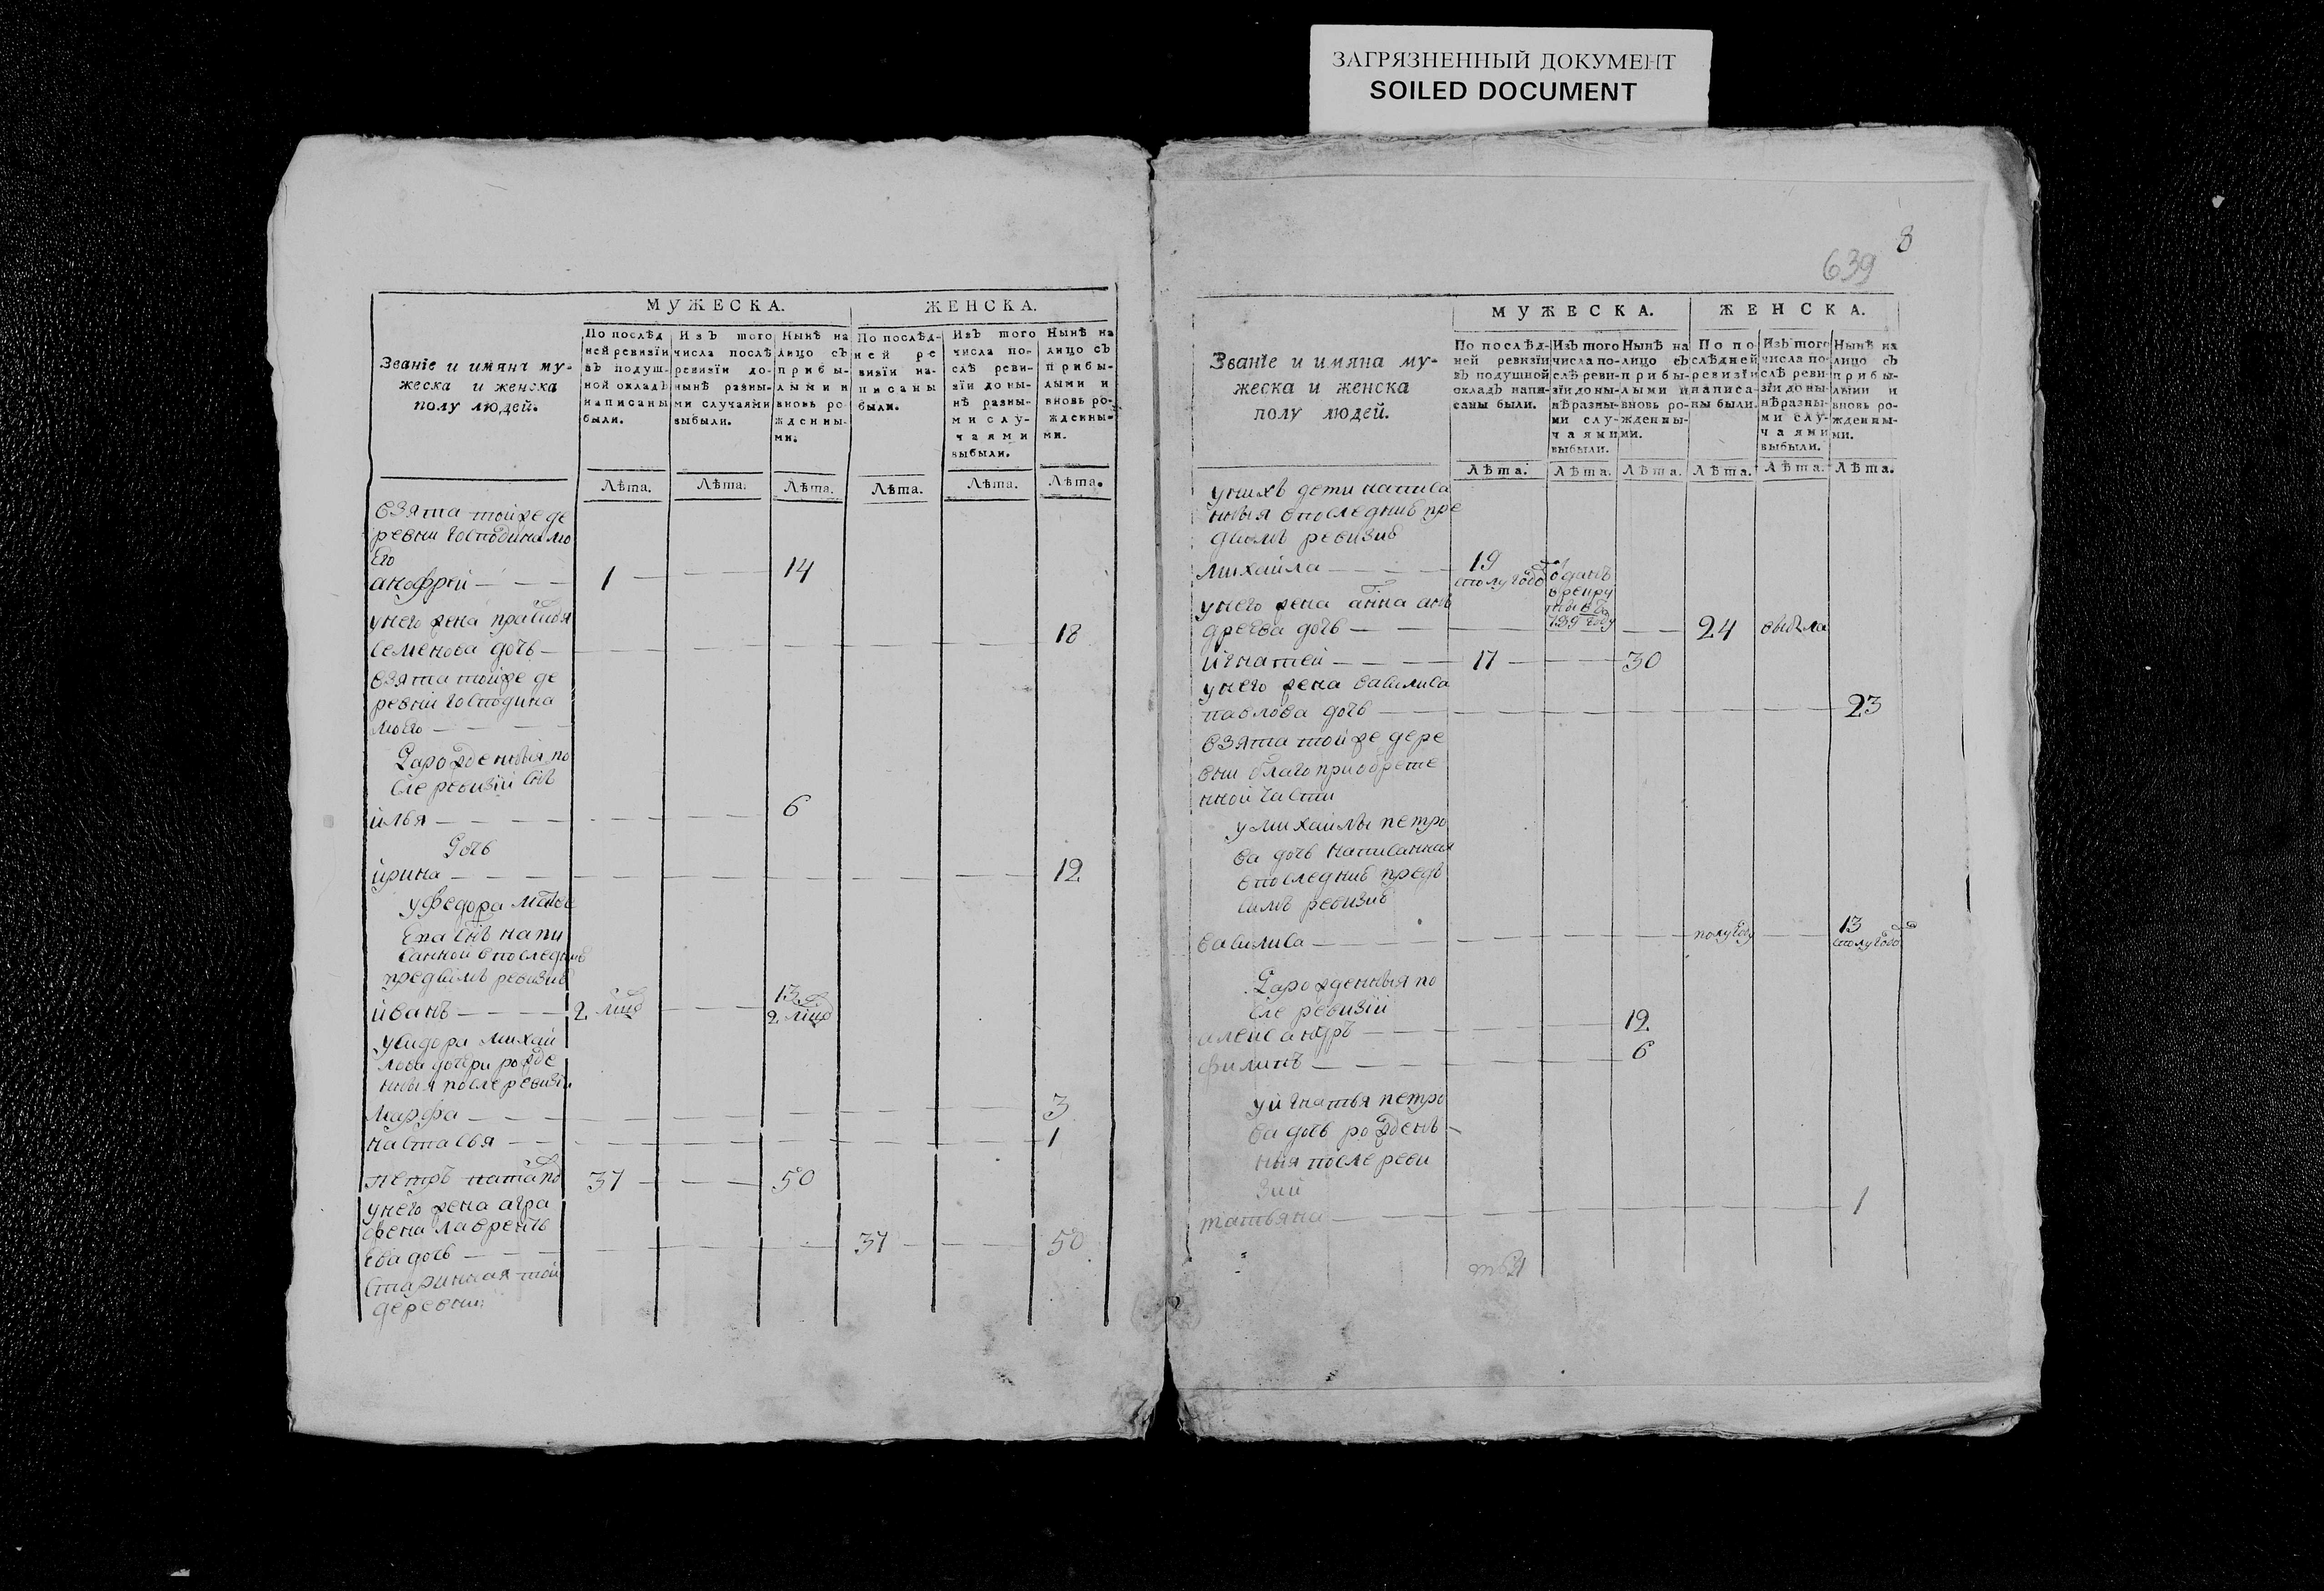 ЗАГРЯЗНЕННЫЙ ДОКУМЕНТ
SOILED DOCUMENT
МУЖЕСКА.
ЖЕНСКА.
Званіе и имяна му-
жеска и женска
полу людей.
По послѣд
ней ревизїи
въ подуш-
ной окладъ
написаны
были.
Изъ того
числа послѣ
ревизїи до-
нынѣ разны-
ми случаями
выбыли.
Нынѣ на
лицо съ
прибы-
лыми и
вновь ро-
жденны-
ми.
По послѣд-
ней ре
визїи на-
писаны
были.
Изъ того
числа по-
слѣ реви-
зїи до ны-
нѣ разны-
ми слу-
чаями
выбыли.
Нынѣ на
лицо съ
прибы-
лыми и
вновь ро-
жденны-
ми.
Лѣта. Лѣта. Лѣта. Лѣта. Лѣта. Лѣта.
взята тойже де
ревни господина мо
его
анофрей 1 14
унего жена
семенова дочь 18
взята тойже де
ревнїи господина
моего
рарожденныя по
сле ревизїи снъ
илья 6
дочь
ирина 12
уфедора матве
ева снъ напи
санной впоследние
предсимъ ревизие
иванъ 2 13
усидора михаи
лова дочери рожде
нныя после ревизїи
марфа 3
настасья 1
петръ 37 50
унего жена агра
фена лаврентье
ева дочь 37 50
старинная той
деревни
8
639
МУЖЕСКА.
ЖЕНСКА.
Званїе и имяна му-
жеска и женска
полу людей.
По послѣд-
ней ревизїи
въ подушной
окладъ напи-
саны были.
Изъ того
числа по-
слѣ реви-
зїи до ны-
нѣ разны-
ми слу-
чаями
выбыли.
Нынѣ на
лицо съ
прибы-
лыми и
вновь ро-
жденны-
ми.
По по
слѣдней
ревизїи
написа-
ны были.
Изъ того
числа по-
слѣ реви-
зїи до ны-
нѣ разны-
ми слу-
чаями
выбыли.
Нынѣ на
лицо съ
прибы-
лыми и
вновь ро-
жденны-
ми.
Лѣта. Лѣта. Лѣта. Лѣта. Лѣта. Лѣта.
унихъ дети написа
нныя впоследние пре
дсимъ ревизие
михайла 19
унего жена анна анъ
дреева дочь 24 выбыла
игнатей 17 30
унего жена василиса
павлова дочь 23
взята тойже дере
вни благоприобрете
нной части
умихайлы петро
ва дочь написанная
впоследние предъ
симъ ревизие
василиса полугоду 13
рарожденныя по
сле ревизїи
александръ 12
филипъ 6
уигнатья петро
ва дочь рожденъ
ныя после реви
зии
татьяна 1